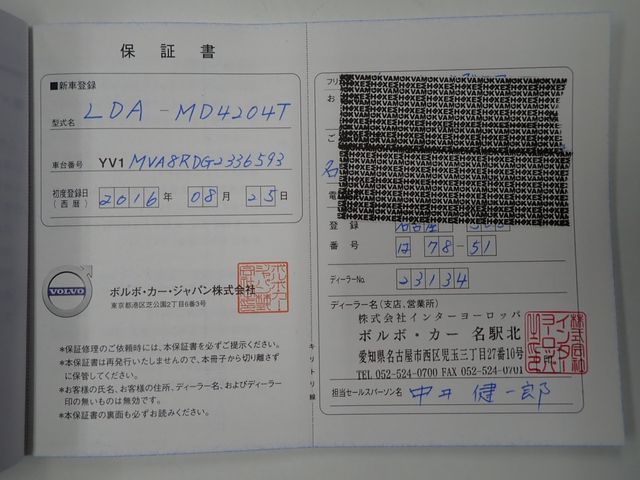 保証書
■新車登録
型式名 LDA-MD4204T
車台番号 YV1 MVA8RDG2336593
初度登録日(西暦) 2016年 08月 25日
VOLVO
ボルボ・カー・ジャパン株式会社
東京都港区芝公園2丁目6番3号
*保証修理のご依頼時には、本保証書を必ずご提示ください。
*本保証書は再発行いたしませんので、本冊子から切り離さずに保管してください。
*お客様の氏名、お客様の住所、ディーラー名、およびディーラー印の無いものは無効です。
*本保証書の裏面も必ずお読みください。
キリトリ線
フリ
お
ご
名
電
登録番号
78-51
ディーラーNo. 23134
ディーラー名(支店、営業所)
株式会社インターヨーロッパ
ボルボ・カー 名駅北
愛知県名古屋市西区児玉三丁目27番10号
TEL 052-524-0700 FAX 052-524-0701
担当セールスパーソン名 中井 健一郎